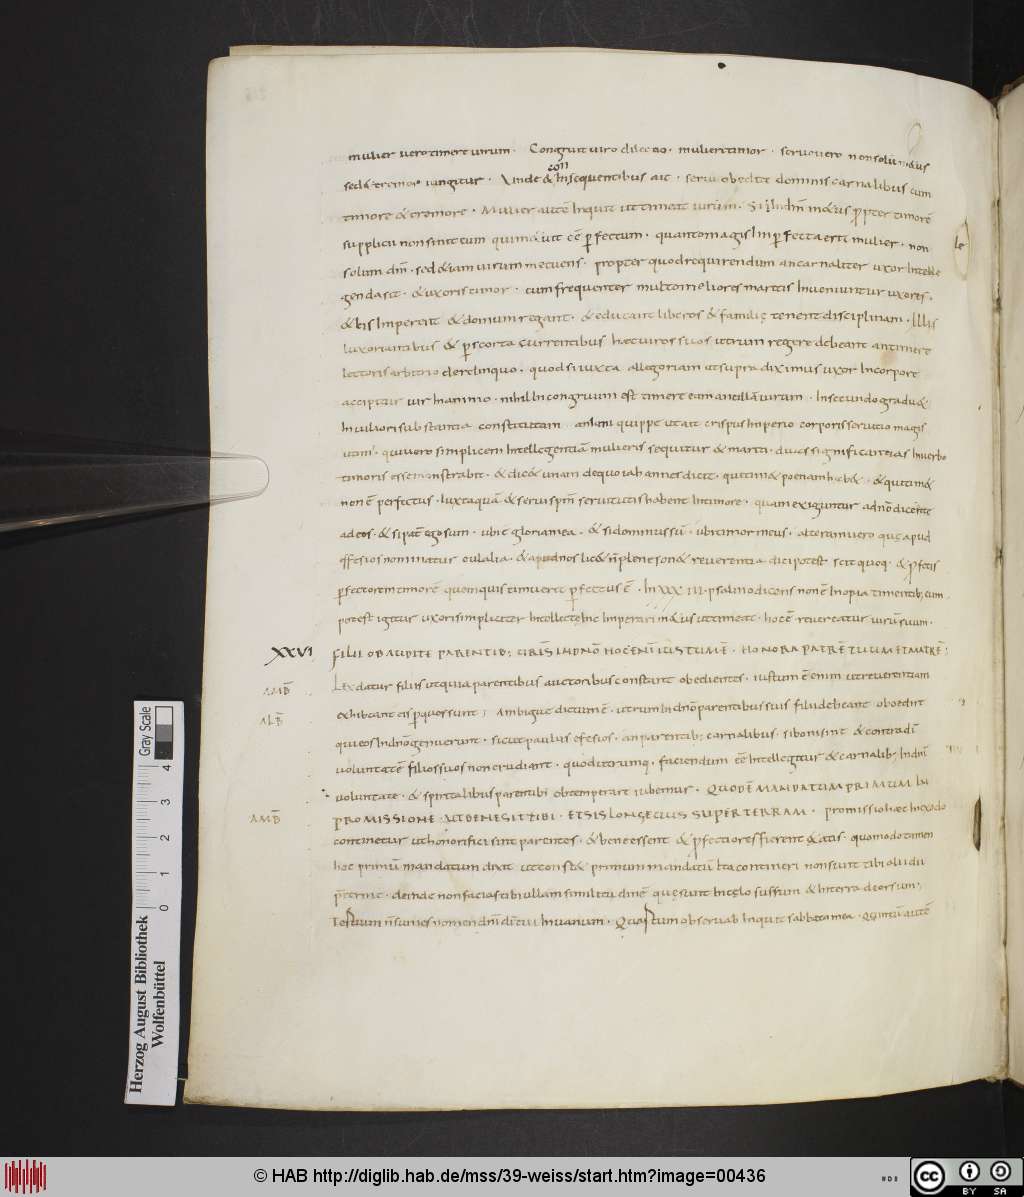 mulier uero timere uirum · Congruit uiro dilectio · mulieri timor · seruo uero non solum timor
sed &tremor iungitur · Unde & in consequentibus ait · serui obedite dominis carnalibus cum
timore &tremore · Mulier autē inquit ut timeat uirum · Si propter timorē
supplicii non sint cum qui timet eē ꝑfectum · quanto magis inꝑfecta erit mulier · non
solum dnm̄ · sed &iam uirum metuens · propter quod requirendum an carnaliter uxor intelle
genda sit · &uxoris timor · cum frequenter multo meliores maritis inueniuntur uxores ·
& eis imperent &domum regant · & educant liberos &familię tenent disciplinam · Illis
luxoriantibus & ꝑ scorta currentibus hae uiros suos utrum regere debeant an timere
lectoris arbitrio derelinquo · quod si iuxta allegoriam ut supra diximus uxor in corpore
accipitur uir in animo · nihil incongruum est timere eam ancillā uirum · in secundo gradu &
in uiliori substantia constitutam · animi quippe ut ait crispus imperio corporis seruitio magis
utimur · qui uero simplicem intellegentiā mulieris sequitur &mariti · duas significantias in uerbo
timoris esse monstrabit · & dic& unam de quo iohannes dicit · qui tim& poenam hab& · &qui tim&
non ē perfectus · Iuxta quā & serui spm̄ seruitutis habent in timore · quam exiguntur ad nō dicente
ad eos · & si pat̄ ego sum · ubi ē gloria mea · & si dominus sū · ubi timor meus · alterum uero quę apud
effesios nominatur eulabia · & apud nos lic& n̄ plene son& reuerentia dici potest
ꝑfectorem timorē quem quis timuerit ꝑfectus ē · In XXXIII · psalmo dicens non ē inopia timentib; eum
potest igitur uxori simpliciter intellectę hic imperari ut timeat · hoc ē reuereatur uirū suum ·
XXVI FILII OBAUDITE PARENTIB; UR̄IS IN DNŌ HOC ENĪ IUSTUM Ē · HONORA PATRĒ TUUM ET MATRĒ ;
AMB̄ Lex datur filiis ut quia parentibus auctoribus constant obedientes · iustum ē enim ut reuerentiam
ALB̄ exhibeant eis ꝑ quos sunt ; Ambigue dictum ē · utrum in dnō parentibus suis filii debeant oboedire
qui eos in dnō genuerunt · sicut paulus efesios · an parentib; carnalibus · si boni sint & contra dī
uoluntatē filios suos non erudiant · quod utrumq · faciendum eē intellegitur & carnalib; in dnī
uoluntate · & spiritalibus parentibus obtemperare iubemur · QUOD Ē MANDATUM PRIMUM IN
AMB̄ PROMISSIONE · UT BENE SIT TIBI · ET SIS LONGEUUS SUPER TERRAM · promissio haec in exodo
continetur ut honorificati sint parentes · & bene essent & ꝑfectiores fierent &atis · quomodo tamen
hoc primū mandatum dixit ut const& primum mandatū ita contineri non sunt tibi alii dii
pret̄ me · deinde non facias tibi ullam similitudinē quę sunt in cęlo sursum & in terra deorsum ;
Tertium n̄ sumes nomen dnī dī tui in uanum · Quartum obseruab inquit sabbata mea · Quintū autē
Herzog August Bibliothek
Wolfenbüttel
0 1 2 3 4
Gray Scale
© HAB http://diglib.hab.de/mss/39-weiss/start.htm?image=00436
cc BY SA